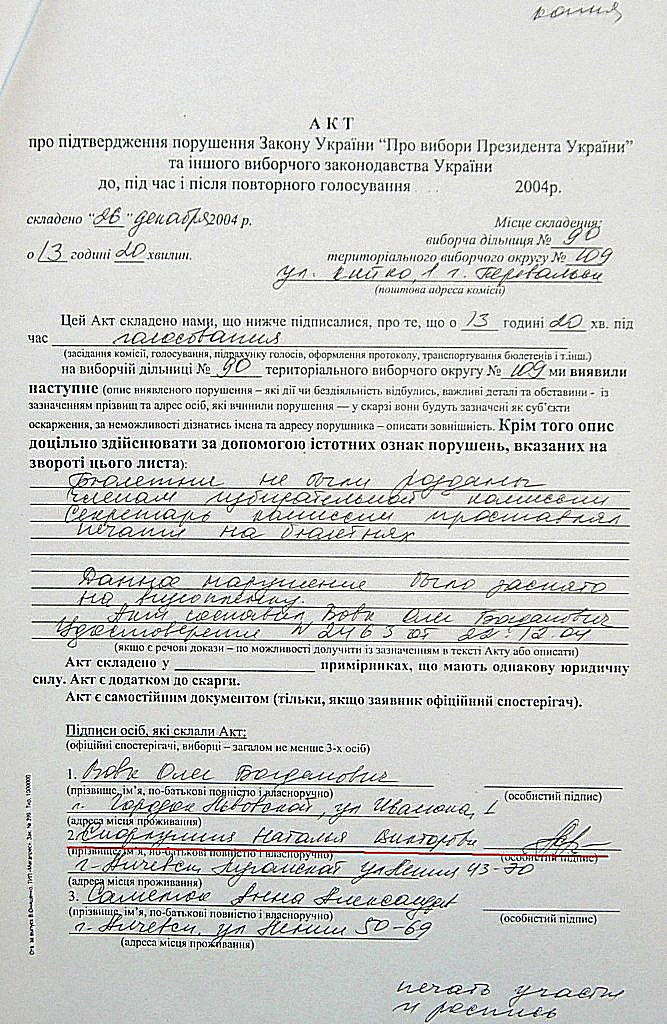 копия
АКТ
про підтвердження порушення Закону України “Про вибори Президента України”
та іншого виборчого законодавства України
до, під час і після повторного голосування 2004р.
складено “26” декабря 2004 р.
Місце складення:
виборча дільниця № 90
о 13 годині 20 хвилин.
територіального виборчого округу № 109
ул. 1 г.
(поштова адреса комісії)
Цей Акт складено нами, що нижче підписалися, про те, що о 13 годині 20 хв. під
час голосования
(засідання комісії, голосування, підрахунку голосів, оформлення протоколу, транспортування бюлетенів і т.інш.)
на виборчій дільниці № 90 територіального виборчого округу № 109 ми виявили
наступне (опис виявленого порушення – які дії чи бездіяльність відбулись, важливі деталі та обставини - із
зазначенням прізвищ та адрес осіб, які вчинили порушення — у скарзі вони будуть зазначені як суб’єкти
оскарження, за неможливості дізнатись імена та адресу порушника – описати зовнішність. Крім того опис
доцільно здійснювати за допомогою істотних ознак порушень, вказаних на
звороті цього листа):
Бюлетени не были розданы
членам избирательной комиссии
Секретарь комиссии проставлял
печати на бюлетнях
Данна нарушение было заснято
на видеопленку.
Акт составил Вовк Олег Богданович
Удостоверение N 2463 от 22.12.04
(якщо є речові докази – по можливості долучити із зазначенням в тексті Акту або описати)
Акт складено у примірниках, що мають однакову юридичну
силу. Акт є додатком до скарги.
Акт є самостійним документом (тільки, якщо заявник офіційний спостерігач).
Підписи осіб, які склали Акт:
(офіційні спостерігачі, виборці – загалом не менше 3-х осіб)
1. Вовк Олег Богданович
(прізвище, ім’я, по-батькові повністю і власноручно) (особистий підпис)
г. Городок Львовской, ул Иванона, 1
(адреса місця проживання)
2. Наталья Викторовн
(прізвище, ім’я, по-батькові повністю і власноручно) (особистий підпис)
г. Алчевск Луганской ул Ленин 43-70
(адреса місця проживання)
3. Саменюк Анна Александр
(прізвище, ім’я, по-батькові повністю і власноручно) (особистий підпис)
г. Алчевск, ул Ленин 50-69
(адреса місця проживання)
печать участка
и роспись